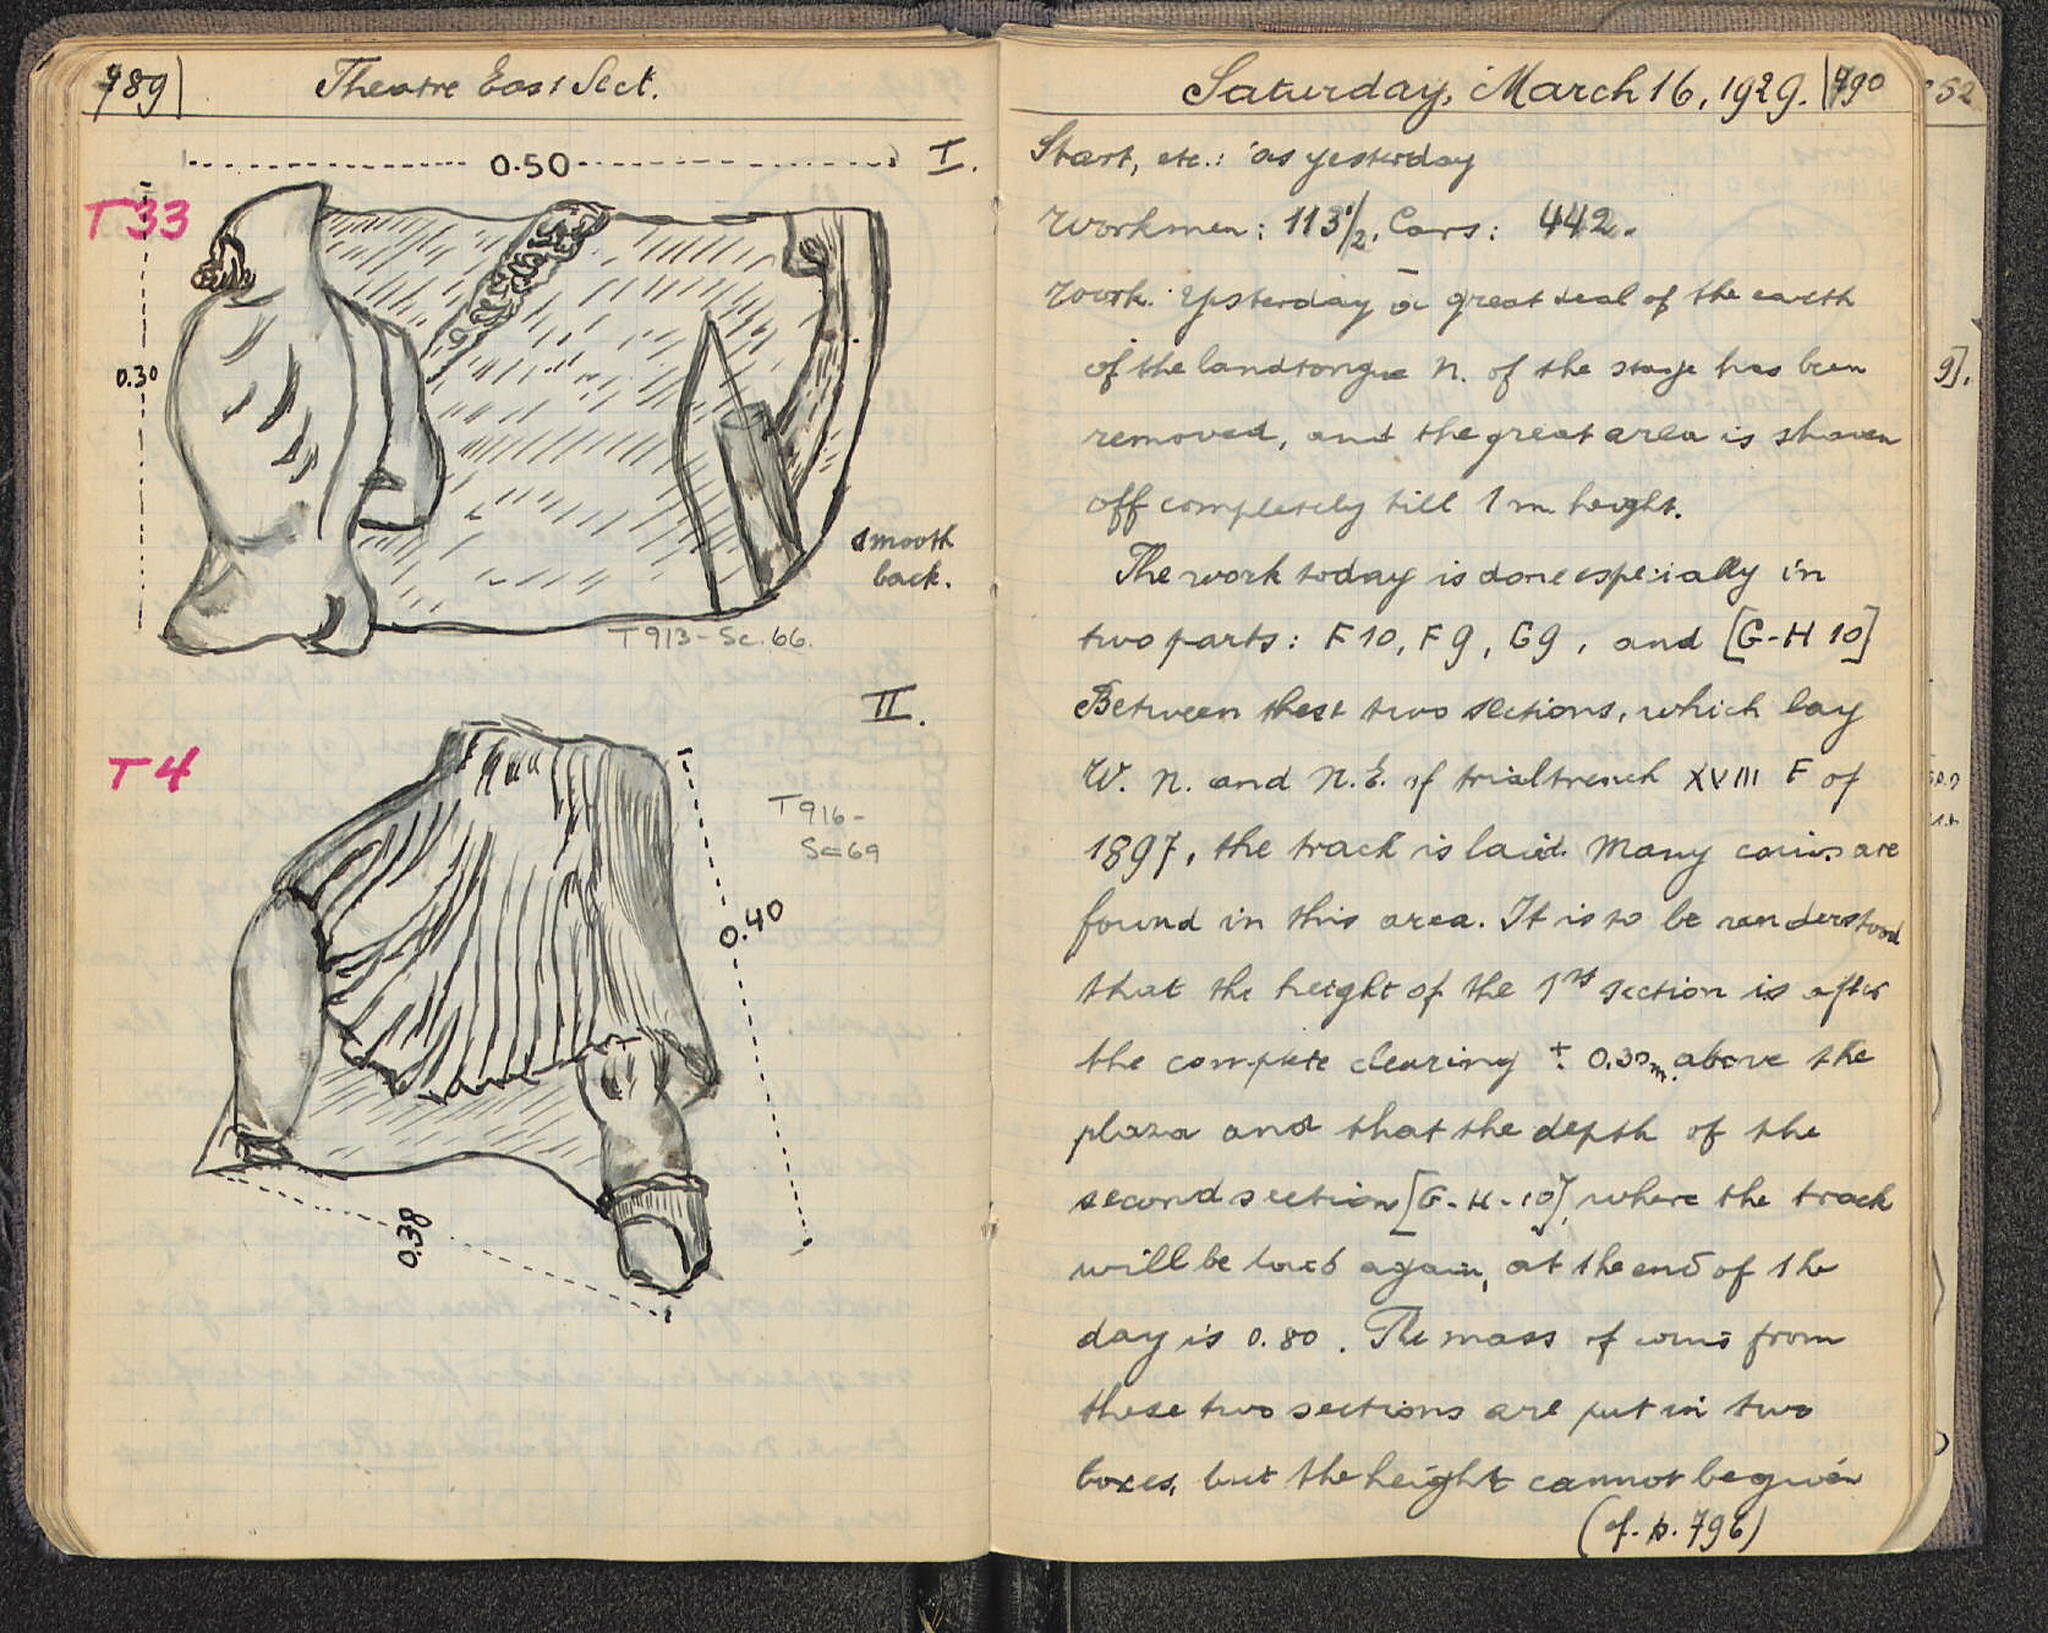 789
Theatre East Sect.
0.50
I.
T 33
0.30
smooth
back.
T 913 - Sc. 66.
II.
T 4
T 916 -
Sc 69
0.40
0.38
Saturday, March 16, 1929. 790
Start, etc.: as yesterday
Workmen: 113 1/2. Cars: 442.
Work. Yesterday a great deal of the earth
of the landtongue N. of the stage has been
removed, and the great area is shaven
off completely till 1 m. height.
The work today is done especially in
two parts: F 10, F 9, G 9, and [G-H 10]
Between these two sections, which lay
W. N. and N.E. of trialtrench XVIII F of
1897, the track is laid. Many coins are
found in this area. It is to be understood
that the height of the 1st section is after
the complete clearing ± 0.30 m. above the
plaza and that the depth of the
second section [G-H-10], where the track
will be laid again, at the end of the
day is 0.80. The mass of coins from
these two sections are put in two
boxes, but the height cannot be given
(cf. p. 796)
52
9].